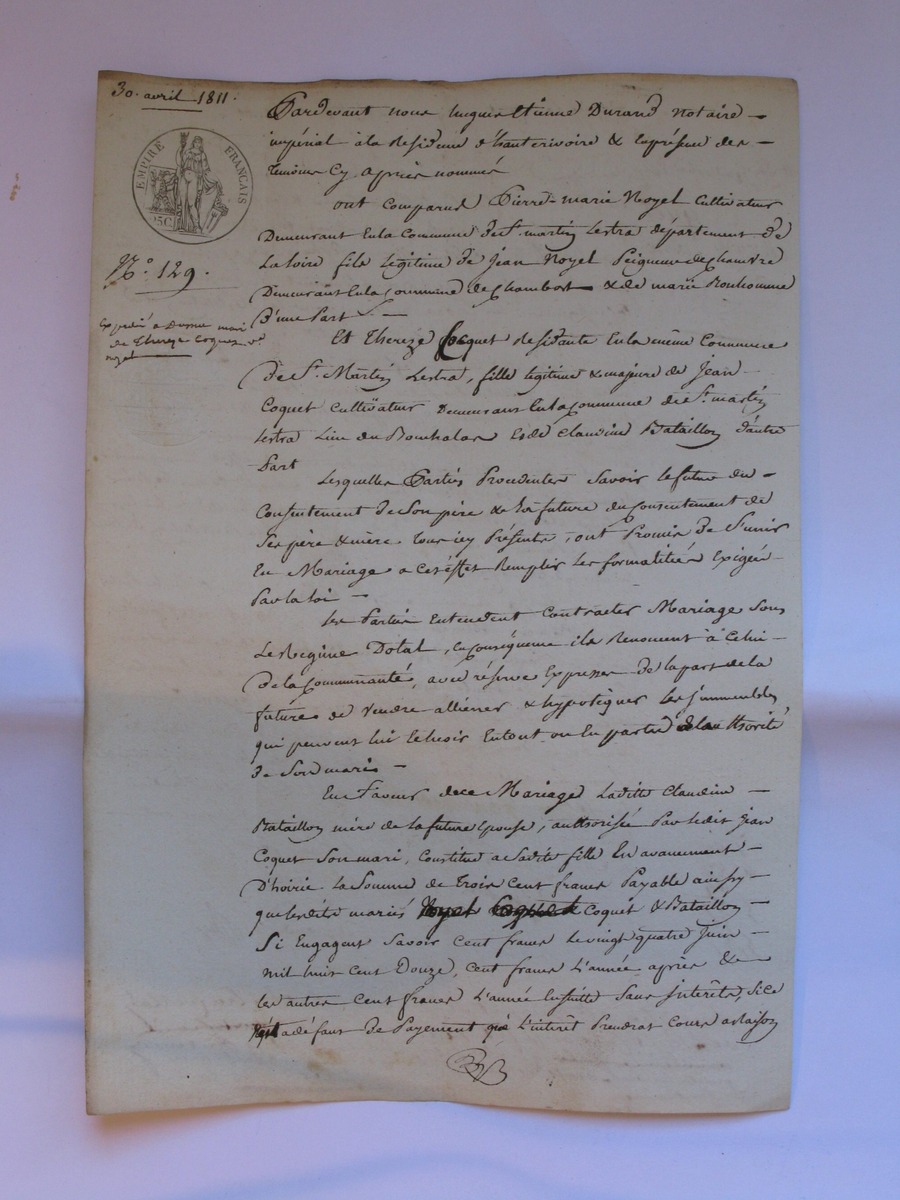 30. avril 1811.
EMPIRE FRANÇAIS
25C
N.o 129.
de Thereze Coquet
Pardevant nous hugue Etienne Durand notaire
impérial à la Residence d'hauterivoire & en présence des
temoins Cy après nommés
ont comparus Pierre-marie Noyel Cultivateur
Demeurant En la Commune de St. martin Lestra département de
La loire fils Légitime de Jean Noyel Peigneur de chanvre
Demeurant En la Commune de Chambost & de marie Bonhomme
d'une Part
Et Thereze Coquet Residante En la même Commune
de St. Martin Lestra, fille légitime & majeure de Jean
Coquet Cultivateur Demeurans En la Commune de St. martin
Lestra Lieu du & de Claudine Bataillon d'autre
Part
Lesquelles Parties Procedentes Savoir le futur du
Consentement de Son père & la future du Consentement de
Ses père & mère tous icy Présents, ont Promis de S'unir
En Mariage a Cet effet Remplir Les formalitées Exigées
Par la loi
Les Parties Entendent Contracter Mariage Sous
Le Régime Dotal, en Conséquence ils Renoncent à Celui
De la Communauté, avec réserve Expresse de la part de la
future de vendre alliéner & hypotequer Les immeubles
qui peuvent lui Echeoir En tout ou En partie de l'authorité
de Son mari
En faveur de ce Mariage Laditte Claudine
Bataillon mère de la future Epouse, authorisée Par ledit Jean
Coquet Son mari, Constitue a Sadite fille En avancement
D'hoirie La Somme de Trois Cent francs Payable ainsy
que lesdits mariés Noyel Coquet Coquet & Bataillon
Si Engagent Savoir Cent francs Le vingt quatre Juin
mil huit Cent Douze, Cent francs L'année après &
les autres Cent francs L'année Ensuitte Sans intérêts, Si ce
n'est a défaut de Payement que L'interêt Prendrat Cours a raison